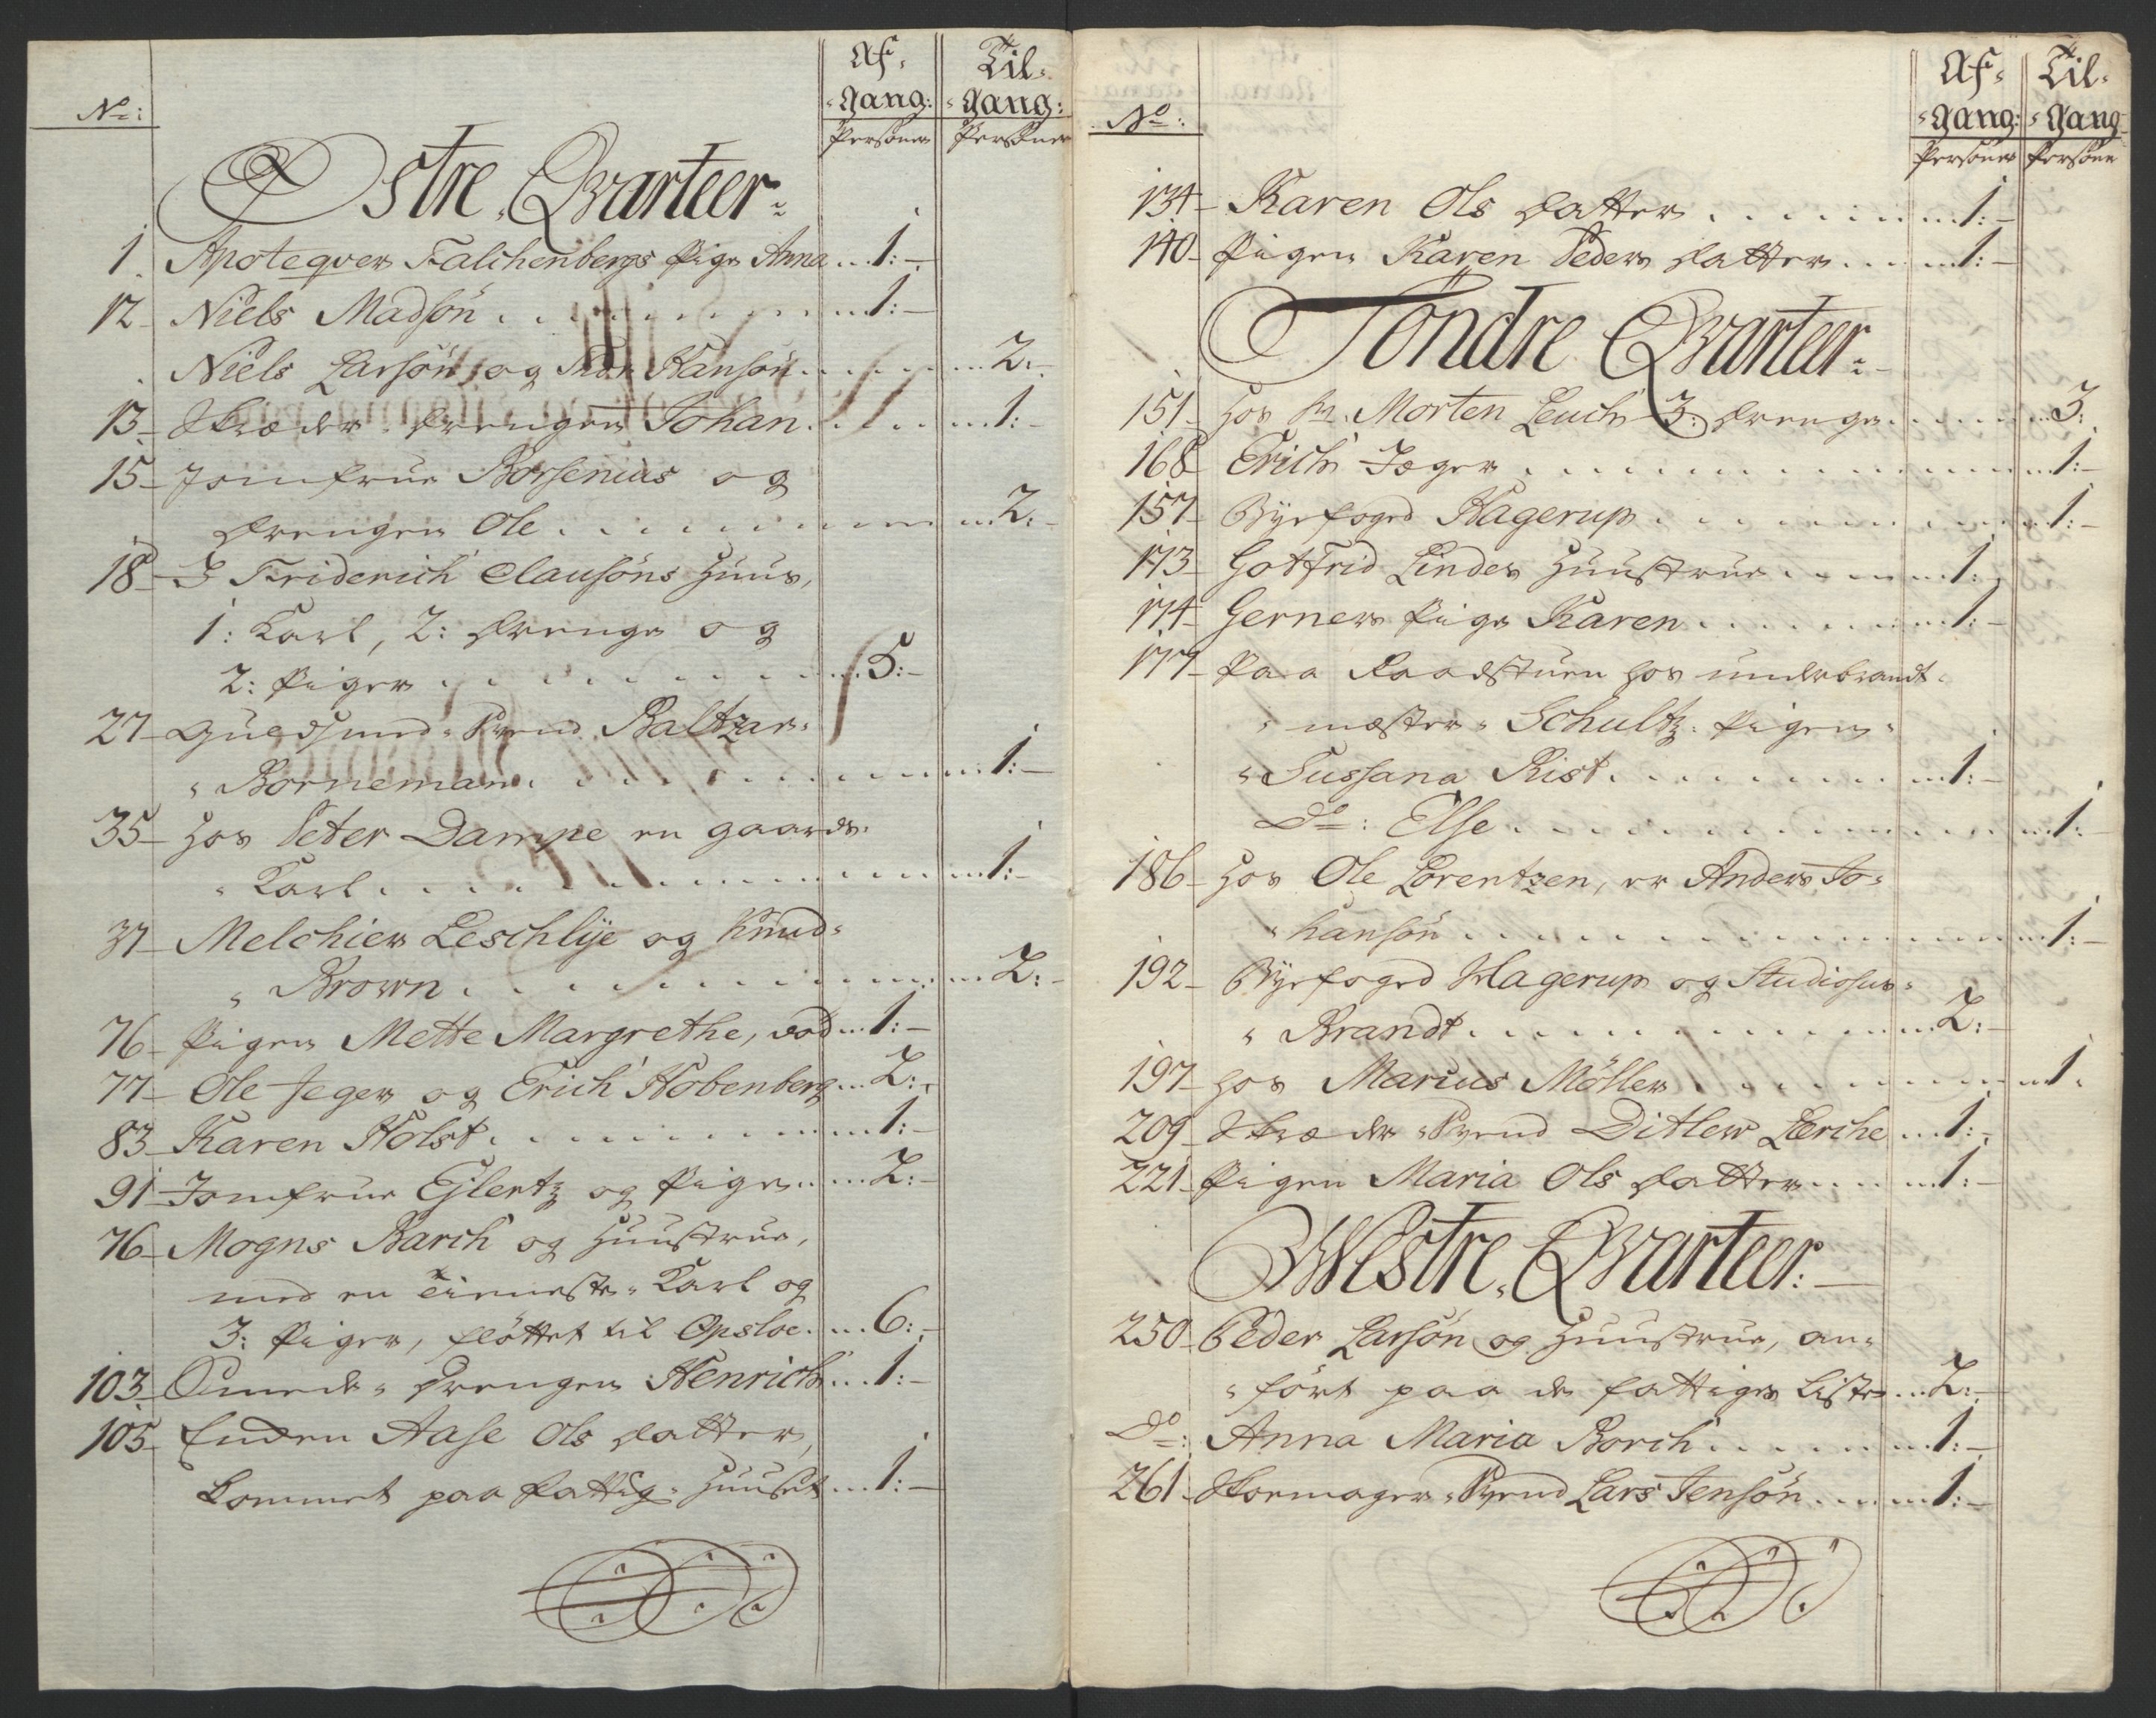 No:
Af-
-gang:
Personer
Til-
-gang:
Personer
Østre Qvarteer
1 Apoteqver Falchenbergs Pige Anna ... 1:
12 Niels Madsøn ... 1:
Niels Larsøn og Hansøn ... 2:
13 Skræder-Drengen Johan ... 1:
15 Jomfrue Borsenius og
Drengen Ole ... 2:
18 I Friderich Clausøns Huus,
1: Karl, 2: Drenge og
2: Piger ... 5:
27 Guldsmed-Svend Baltzar-
-Borneman ... 1:
35 Hos Peter Dampe en gaards-
-Karl ... 1:
37 Melchier Leschlye og Knud-
-Brown ... 2:
76 Pigen Mette Margrethe, død ... 1:
77 Ole Jeger og Erich Kobenberg ... 2:
83 Karen Holst ... 1:
91 Jomfrue Ejlertz og Pige ... 2:
76 Mogns Barch og Huustrue,
med en Tieneste-Karl og
3: Piger, fløttet til Opsloe ... 6:
103 Smede-Drengen Henrich ... 1:
105 Enken Aase Ols Datter,
kommet paa Fattig-Huuset ... 1:
No:
Af-
-gang:
Personer
Til-
-gang
Persone
134 Karen Ols Datter ... 1:
140 Pigen Karen Peders Datter ... 1:
Søndre Qvarteer
151 Hos Hr. Morten Leuch 3: Drenge ... 3:
168 Erich Jæger ... 1:
157 Byefoged Hagerup ... 1:
173 Gotfrid Lindes Huustrue ... 1:
174 Gerners Pige Karen ... 1:
177 Paa Raadstuen hos underbrandt-
-mæster-Schultz: Pigen-
-Sussana Rist ... 1:
Do: Else ... 1:
186 Hos Ole Lorentzen, er Anders Jo-
-hansøn ... 1:
192 Byefoged Hagerup og Studiosus-
-Brandt ... 2:
197 Hos Marius Möller ... 1.
209 Skræder-Svend Ditlew Lerche ... 1:
221 Pigen Maria Ols Datter ... 1:
Westre Qvarteer:
250 Peder Larsøn og Huustrue, an-
-ført paa de fattiges Liste ... 2:
Do: Anna Maria Borch ... 1:
261 Skoemager-Svend Lars Jensøn ... 1: